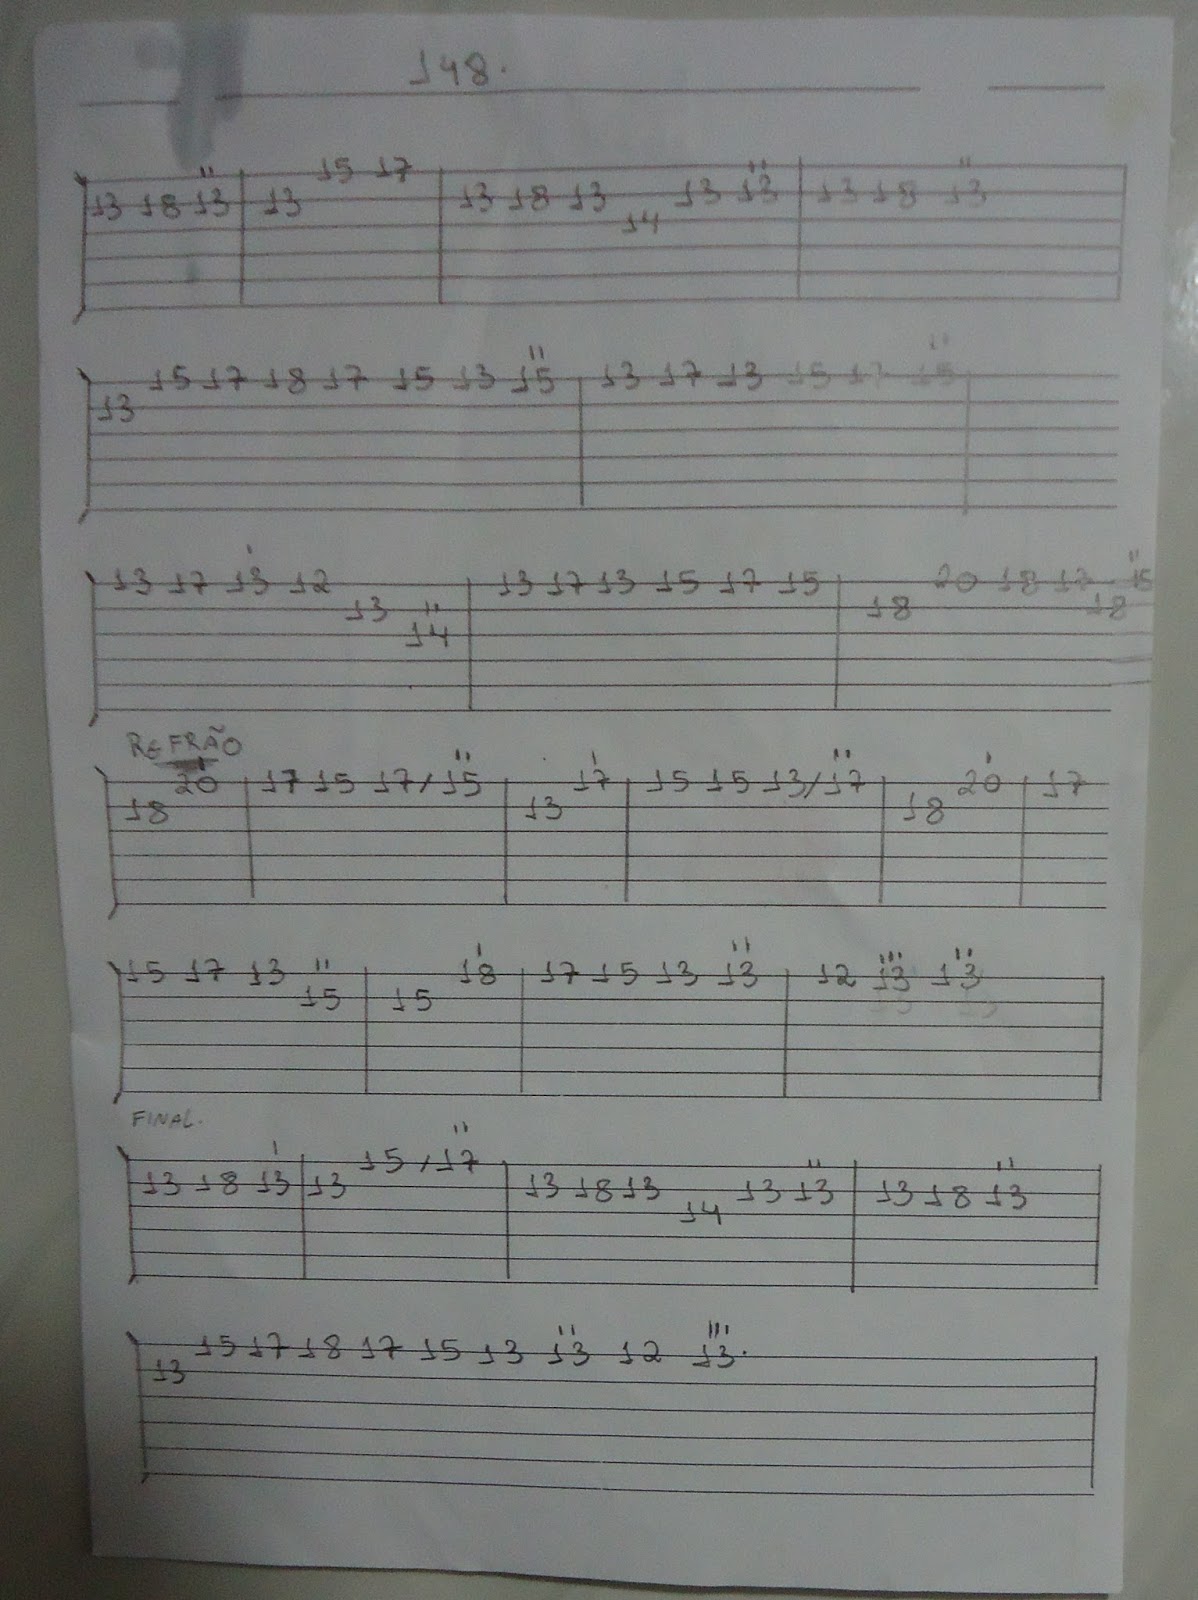 148.
15 17
13 18 13 13 13 18 13 13 13 13 18 13
14
15 17 18 17 15 13 15 13 17 13 15 17 15
13
13 17 13 12 13 17 13 15 17 15 20 18 17 15
13 18 18
14
REFRÃO
20 17 15 17/15 17 15 15 13/17 20 17
18 13 18
15 17 13 18 17 15 13 13 12 13 13
15 15
FINAL.
15/17
13 18 13 13 13 18 13 13 13 13 18 13
14
15 17 18 17 15 13 13 12 13.
13